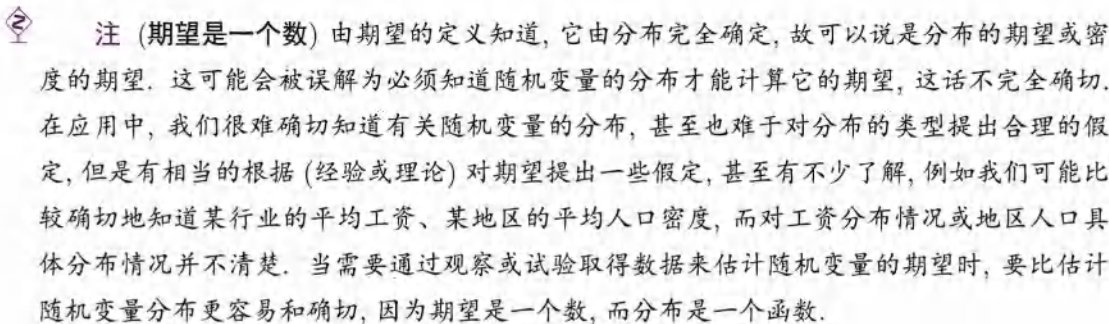 注 (期望是一个数) 由期望的定义知道, 它由分布完全确定, 故可以说是分布的期望或密
度的期望. 这可能会被误解为必须知道随机变量的分布才能计算它的期望, 这话不完全确切.
在应用中, 我们很难确切知道有关随机变量的分布, 甚至也难于对分布的类型提出合理的假
定, 但是有相当的根据 (经验或理论) 对期望提出一些假定, 甚至有不少了解, 例如我们可能比
较确切地知道某行业的平均工资、某地区的平均人口密度, 而对工资分布情况或地区人口具
体分布情况并不清楚. 当需要通过观察或试验取得数据来估计随机变量的期望时, 要比估计
随机变量分布更容易和确切, 因为期望是一个数, 而分布是一个函数.